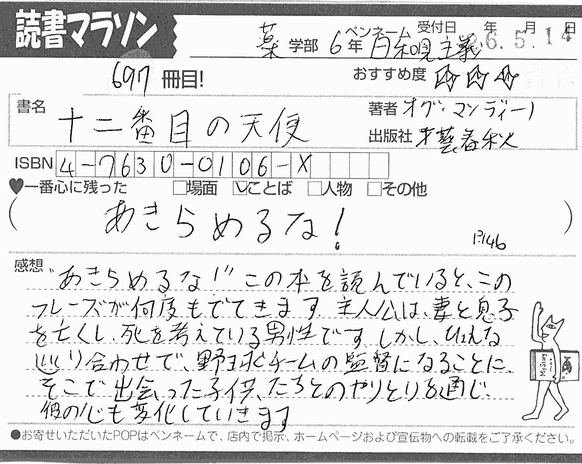 読書マラソン
薬 学部 6年 ペンネーム 日和見主義 受付日 年 月 日
6.5.14
697 冊目!
おすすめ度 ☆☆☆
書名 十二番目の天使
著者 オグ・マンディーノ
出版社 求龍堂
ISBN 4-7630-0106-X
♥一番心に残った □場面 ☑ことば □人物 □その他
(あきらめるな!)
P.146
感想 "あきらめるな!" この本を読んでいると、この
フレーズが何度もでてきます。主人公は、妻と息子
を亡くし、死を考えている男性です。しかし、ひょんな
巡り合わせで、野球チームの監督になることに。
そこで出会った子供たちとのやりとりを通じ、
彼の心も変化していきます
●お寄せいただいたPOPはペンネームで、店内で掲示、ホームページおよび宣伝物への転載をご了承ください。